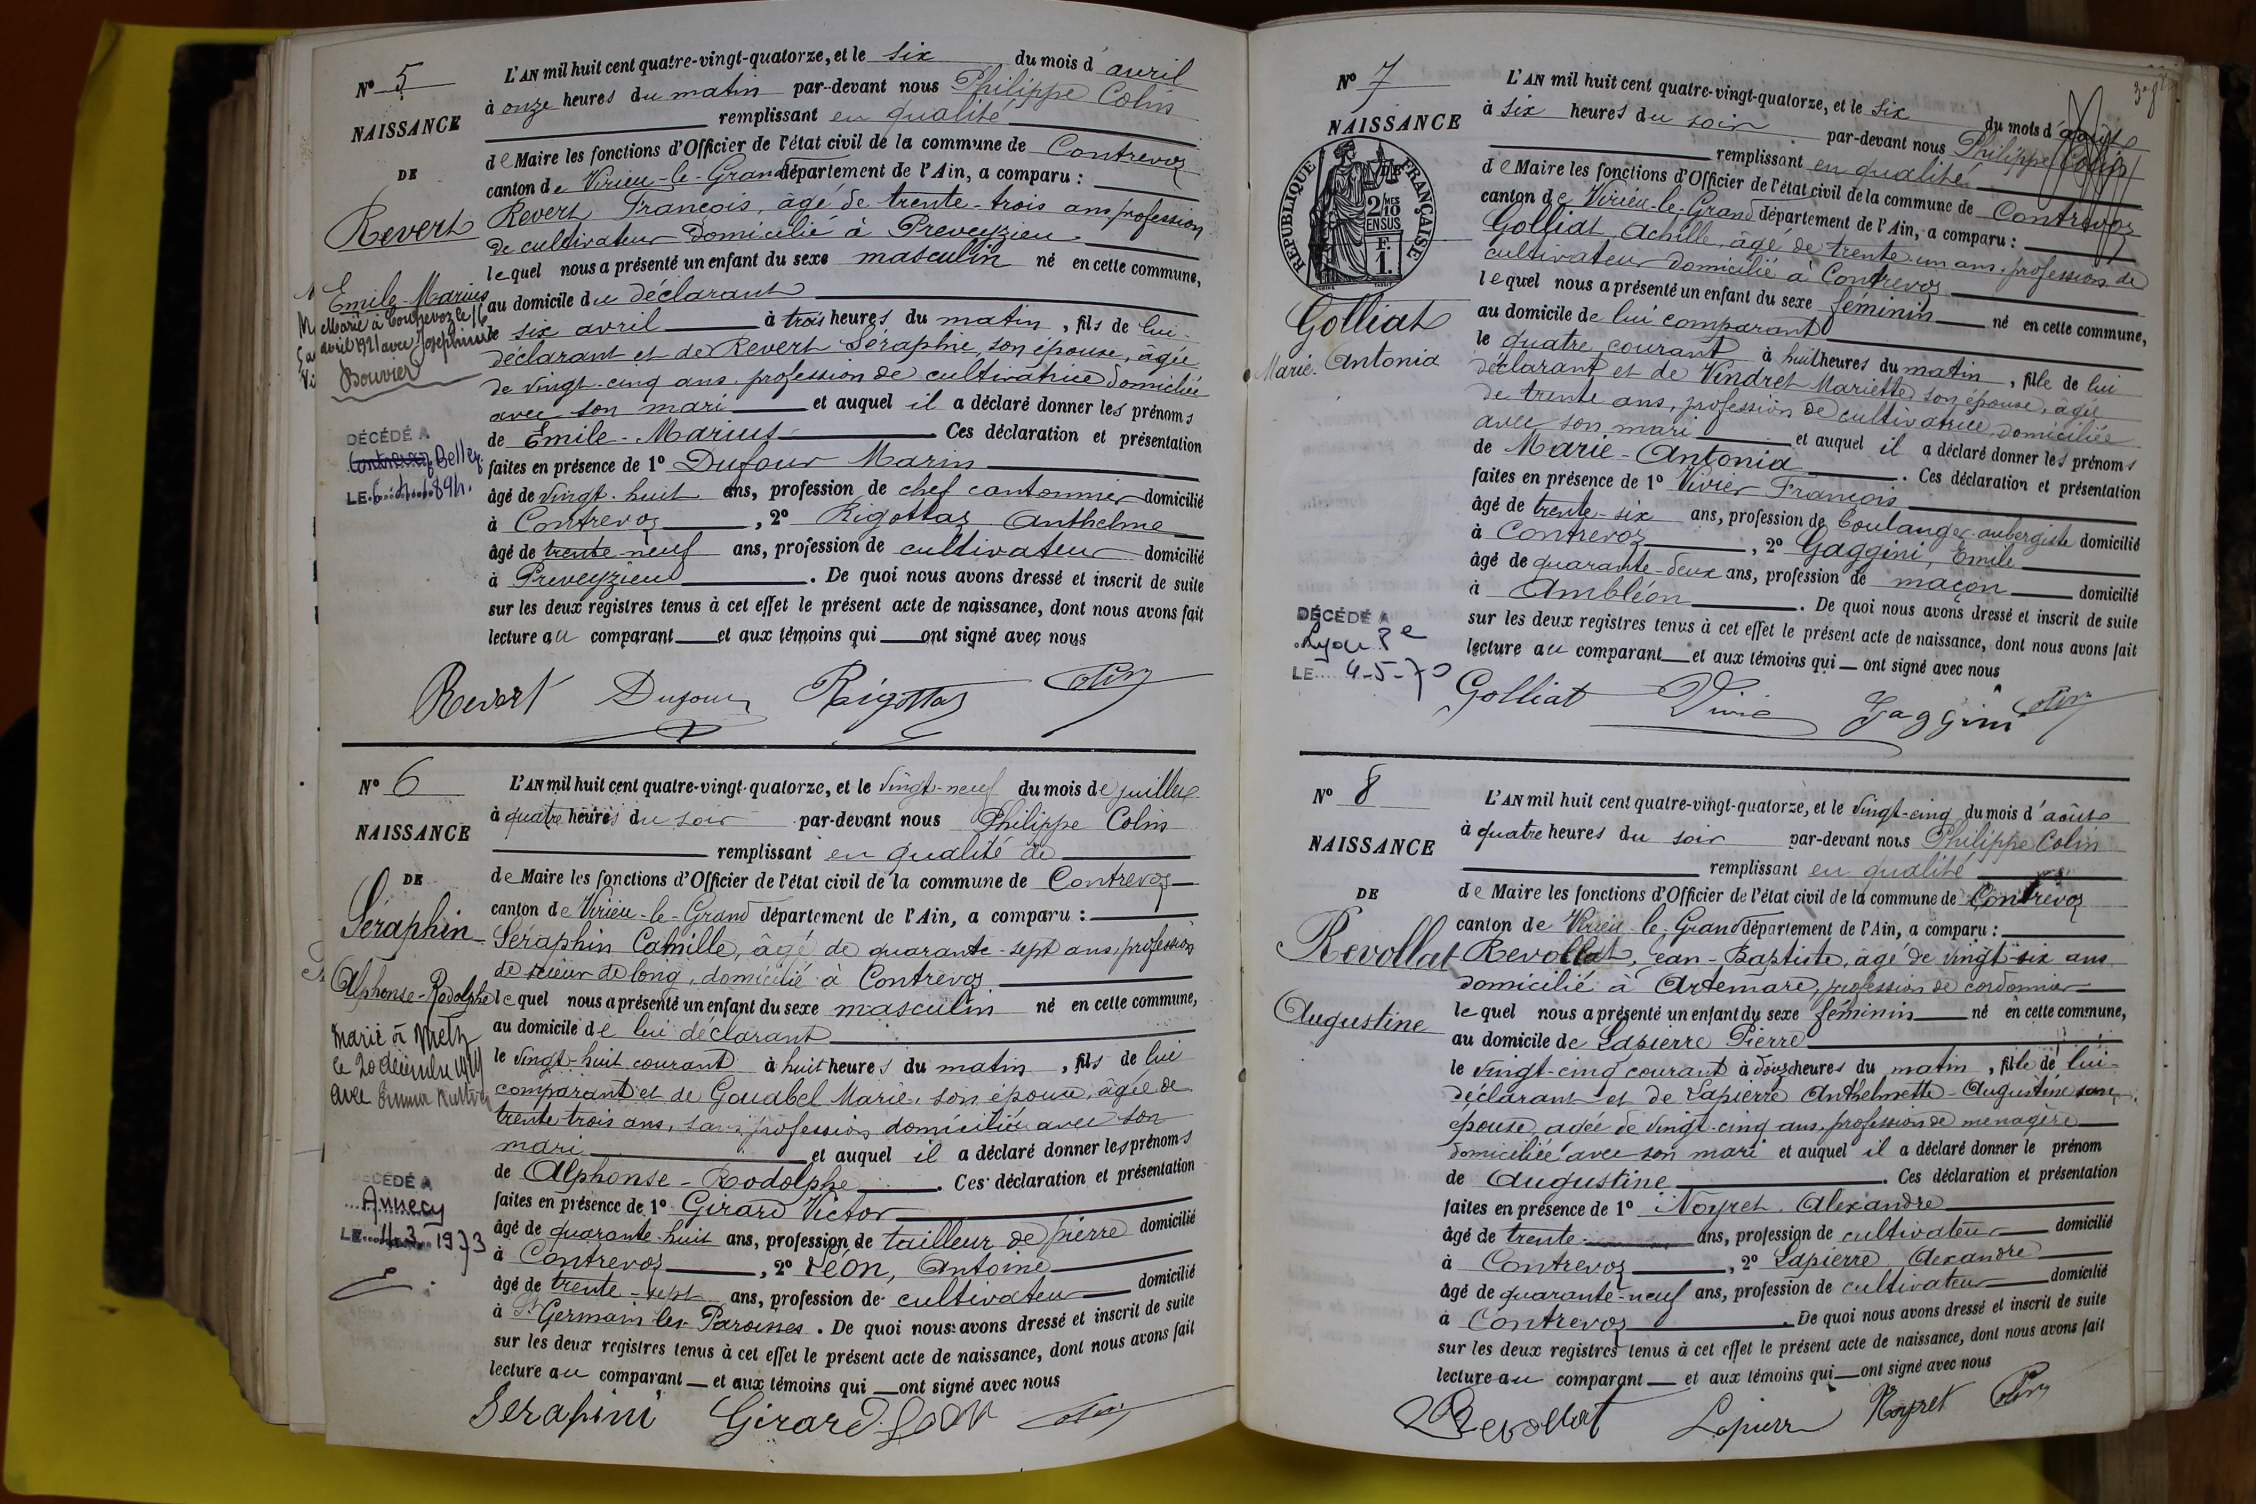 N° 5
NAISSANCE
DE
Revert
Emile-Marius
Marié à Contrevoz le 16
avril 1921 avec Joséphine
Bouvier
DÉCÉDÉ A
Belley
LE
L'AN mil huit cent quatre-vingt-quatorze, et le six du mois d'avril
à onze heures du matin par-devant nous Philippe Colin
remplissant en qualité
de Maire les fonctions d'Officier de l'état civil de la commune de Contrevoz
canton de Virieu-le-Grand département de l'Ain, a comparu :
Revert François, âgé de trente-trois ans profession
de cultivateur domicilié à Preveyzieu
lequel nous a présenté un enfant du sexe masculin né en cette commune,
au domicile du déclarant
le six avril à trois heures du matin, fils de lui
déclarant et de Revert Séraphie, son épouse, âgée
de vingt-cinq ans profession de cultivatrice domiciliée
avec son mari et auquel il a déclaré donner les prénoms
de Emile-Marius. Ces déclaration et présentation
faites en présence de 1° Dufour Marin
âgé de vingt-huit ans, profession de chef cantonnier domicilié
à Contrevoz, 2° Rigottaz Anthelme
âgé de trente-neuf ans, profession de cultivateur domicilié
à Preveyzieu. De quoi nous avons dressé et inscrit de suite
sur les deux registres tenus à cet effet le présent acte de naissance, dont nous avons fait
lecture au comparant et aux témoins qui ont signé avec nous
Revert Dufour Rigottaz Colin
N° 6
NAISSANCE
DE
Séraphin
Alphonse-Rodolphe
Marié à Metz
le 20 décembre 1919
avec Emma
DÉCÉDÉ A
Annecy
LE 11.3.1973
L'AN mil huit cent quatre-vingt-quatorze, et le vingt-neuf du mois de juillet
à quatre heures du soir par-devant nous Philippe Colin
remplissant en qualité de
de Maire les fonctions d'Officier de l'état civil de la commune de Contrevoz
canton de Virieu-le-Grand département de l'Ain, a comparu :
Séraphin Camille, âgé de quarante-sept ans, profession
de scieur de long, domicilié à Contrevoz
lequel nous a présenté un enfant du sexe masculin né en cette commune,
au domicile de lui déclarant
le vingt-huit courant à huit heures du matin, fils de lui
comparant et de Goudbel Marie, son épouse, âgée de
trente trois ans, sans profession domiciliée avec son
mari et auquel il a déclaré donner les prénoms
de Alphonse-Rodolphe. Ces déclaration et présentation
faites en présence de 1° Girard Victor
âgé de quarante-huit ans, profession de tailleur de pierre domicilié
à Contrevoz, 2° Léon, Antoine
âgé de trente-sept ans, profession de cultivateur domicilié
à St Germain les Paroisses. De quoi nous avons dressé et inscrit de suite
sur les deux registres tenus à cet effet le présent acte de naissance, dont nous avons fait
lecture au comparant et aux témoins qui ont signé avec nous
Serafini Girard Léon Colin
N° 7
NAISSANCE
RÉPUBLIQUE FRANÇAISE
2/10 MES EN SUS
F. 1.
Golliat
Marie-Antonia
DÉCÉDÉ A
Lyon 8e
LE 4-5-70
L'AN mil huit cent quatre-vingt-quatorze, et le six du mois d'août
à six heures du soir par-devant nous Philippe Colin
remplissant en qualité
de Maire les fonctions d'Officier de l'état civil de la commune de Contrevoz
canton de Virieu-le-Grand département de l'Ain, a comparu :
Golliat Achille, âgé de trente un ans, profession de
cultivateur domicilié à Contrevoz
lequel nous a présenté un enfant du sexe féminin né en cette commune,
au domicile de lui comparant
le quatre courant à huit heures du matin, fille de lui
déclarant et de Vindret Mariette, son épouse, âgée
de trente ans, profession de cultivatrice domiciliée
avec son mari et auquel il a déclaré donner les prénoms
de Marie-Antonia. Ces déclaration et présentation
faites en présence de 1° Vivier François
âgé de trente-six ans, profession de boulanger aubergiste domicilié
à Contrevoz, 2° Gaggini, Emile
âgé de quarante-deux ans, profession de maçon domicilié
à Ambléon. De quoi nous avons dressé et inscrit de suite
sur les deux registres tenus à cet effet le présent acte de naissance, dont nous avons fait
lecture au comparant et aux témoins qui ont signé avec nous
Golliat Vivier Gaggini Colin
N° 8
NAISSANCE
DE
Revollat
Augustine
L'AN mil huit cent quatre-vingt-quatorze, et le vingt-cinq du mois d'août
à quatre heures du soir par-devant nous Philippe Colin
remplissant en qualité
de Maire les fonctions d'Officier de l'état civil de la commune de Contrevoz
canton de Virieu-le-Grand département de l'Ain, a comparu :
Revollat, Jean-Baptiste, âgé de vingt-six ans
domicilié à Artemare, profession de cordonnier
lequel nous a présenté un enfant du sexe féminin né en cette commune,
au domicile de Lapierre Pierre
le vingt-cinq courant à douze heures du matin, fille de lui
déclarant et de Lapierre Anthelmette-Augustine son
épouse, agée de vingt-cinq ans, profession de menagère
domiciliée avec son mari et auquel il a déclaré donner le prénom
de Augustine. Ces déclaration et présentation
faites en présence de 1° Noyret Alexandre
âgé de trente ans, profession de cultivateur domicilié
à Contrevoz, 2° Lapierre Alexandre
âgé de quarante-neuf ans, profession de cultivateur domicilié
à Contrevoz. De quoi nous avons dressé et inscrit de suite
sur les deux registres tenus à cet effet le présent acte de naissance, dont nous avons fait
lecture au comparant et aux témoins qui ont signé avec nous
Revollat Lapierre Noyret Colin